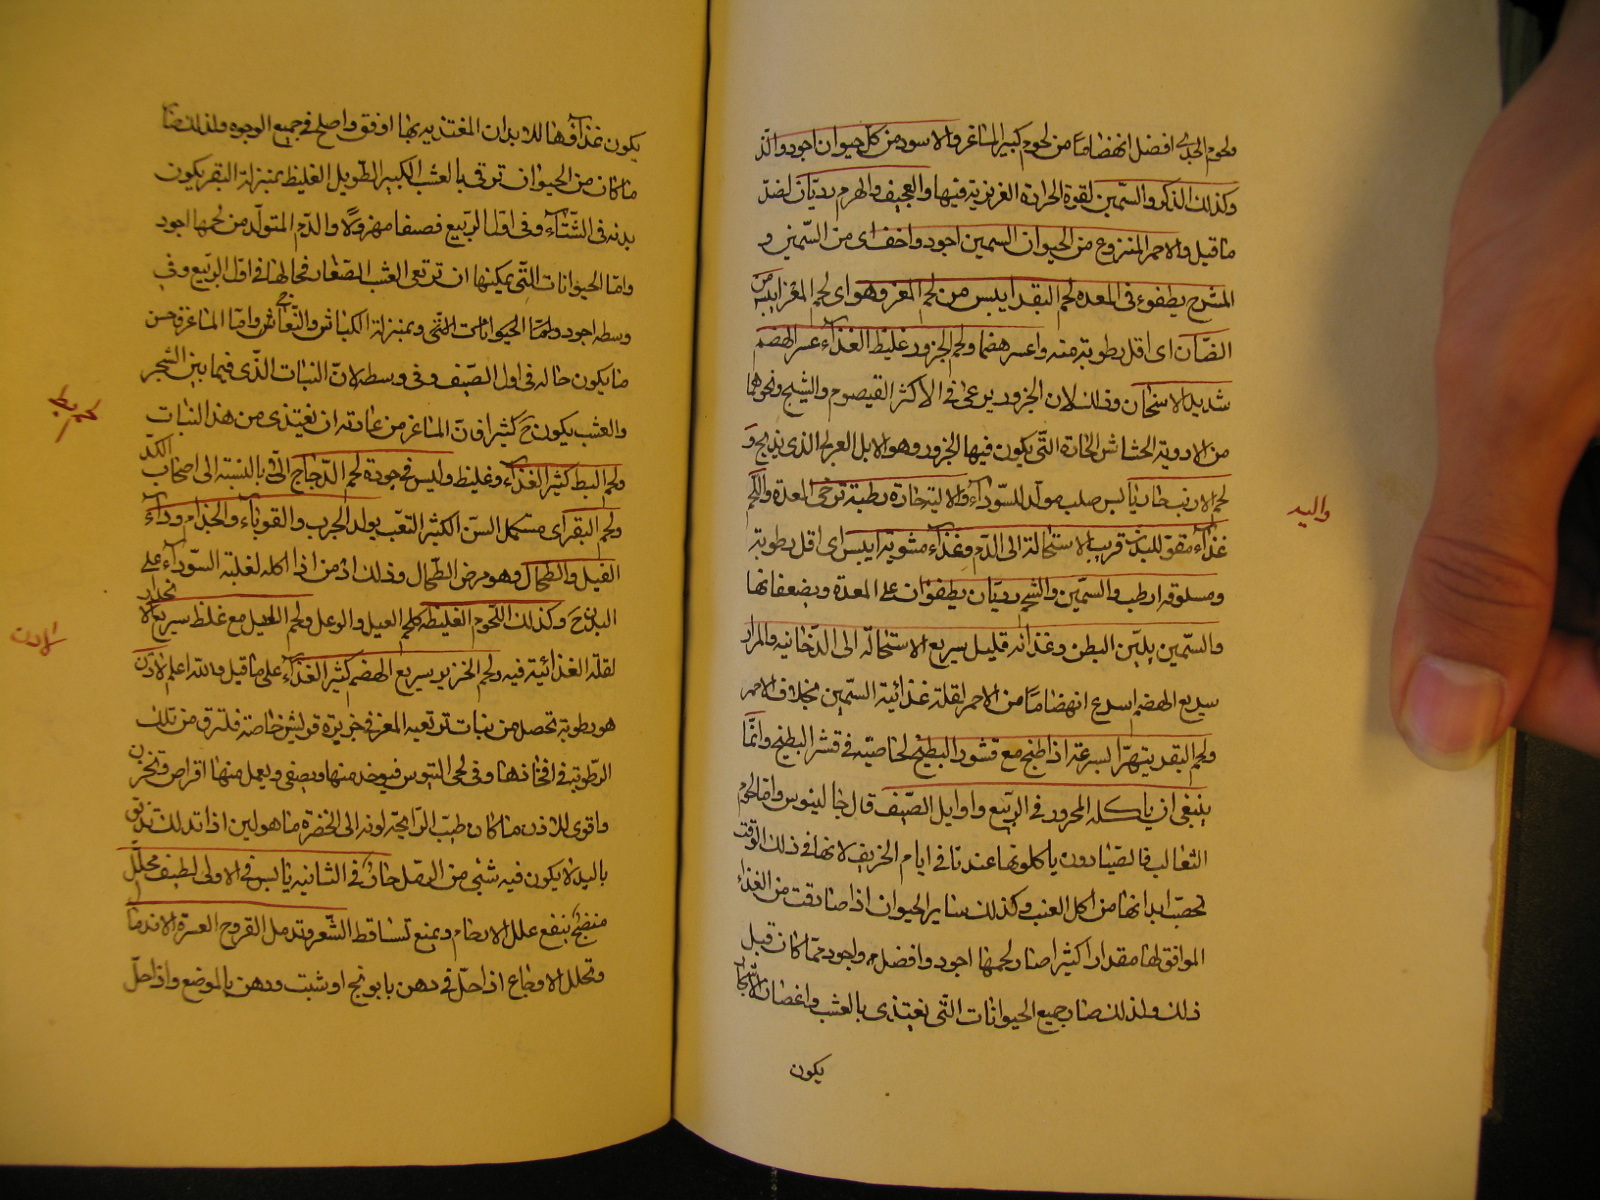 ولحوم الجداء افضل انهضامًا من لحوم كبير الماعز والاسود من كل حيوان اجود والذ
وكذلك الذكر والسمين لقوة الحرارة الغريزية فيها والعجيف والهرم رديان لضد
ما قيل والاحمر المنزوع من الحيوان السمين اجود واخف اى من السمين و
المشرح يطفوء فى المعده لحم البقر ايبس من لحم المعز وهو اى لحم المعز ايبس من
الضأن اى اقل رطوبة منه واعسر هضما ولحم الجزور غليظ الغذاء عسر الهضم
شديد الاسخان وذلك لان الجزور يرعى فى الاكثر القيصوم والشيح ونحوهما
من الادوية الحشائش الحارة التى يكون فيها الجزور وهو الابل العربى الذى يذبح و
لحم الارنب حار يابس صلب مولد للسوداء والالية حارة رطبة ترخى المعدة واللحم
غذاء مقو للبدن قريب الاستحالة الى الدم وغذاء مشويه ايبس اى اقل رطوبة
ومسلوقه ارطب والسمين والشحم رديان يطفوان على المعدة ويضعفانها
والسمين يلين البطن وغذائه قليل سريع الاستحالة الى الدخانيه والمرار
سريع الهضم اسرع انهضامًا من الاحمر لقلة غذائية السمين بخلاف الاحمر
ولحم البقر يتهرّا بسرعة اذا طبخ مع قشور البطيخ لخاصية فى قشر البطيخ وانما
ينبغى ان ياكله المحرور فى الربيع واوايل الصيف قال جالينوس واما لحوم
الثعالب فالصيادون ياكلونها عندنا فى ايام الخريف لانها فى ذلك الوقت
تخصب ابدانها من اكل العنب وكذلك ساير الحيوان اذا صادفت من الغذاء
الموافق لها مقدارا كثيرا صار لحمها اجود وافضل واجود مما كان قبل
ذلك ولذلك صار جميع الحيوانات التى تغتذى بالعشب واغصان الاشجار
يكون
واليه
يكون غذاؤها للابدان المغتذيه بها اوفق واصلح فى جميع الوجوه ولذلك صار
ما كان من الحيوان ترتقى بالعشب الكبير الطويل الغليظ بمنزلة البقر يكون
بدنه فى الشتاء وفى اول الربيع قصفا مهزولًا والدم المتولد من لحمها اجود
واما الحيوانات التى يمكنها ان ترتعى العشب الصغار فحالها فى اول الربيع وفى
وسطه اجود واما الحيوانات التى بمنزلة الكباش والنعاج واما الماعز فاحسن
ما يكون حاله فى اول الصيف وفى وسطه لان النبات الذى فيما بين الشجر
والعشب يكون ح كثيرا فان الماعز من عادته ان تغتذى من هذا النبات
ولحم البط كثير الغذاء وغليظ وليس فى جودة لحم الدجاج التى بالنسبة الى اصحاب الكد
ولحم البقر اى مستكمل السن الكثير التعب يولد الجرب والقوباء والجذام وداء
الفيل والطحال وهو مرض الطحال وذلك اذ من اذا اكله لغلبة السوداء على
البدن ح وكذلك اللحوم الغليظه كلحم الفيل والوعل ولحم الخيل مع غلظ سريع الانحدار
لقلة الغذائية فيه ولحم الخنزير سريع الهضم كثير الغذاء على ما قيل والله اعلم لاذن
هو رطوبة تحصل من نبات ترتعيه المعز فى جزيرة قبرس خاصة فلتزق من تلك
الرطوبة فى افخاذها وفى لحى التيوس فيؤخذ منها ويصفى ويعمل منها اقراص وتخزن
واقوى للاذن ما كان طيب الرائحة لونه الى الخضرة ما هو لين اذا تدلك تدبق
باليد لا يكون فيه شئى من الرمل حار فى الثانيه يابس فى الاولى لطيف محلل
منضج ينفع علل الارحام ويمنع تساقط الشعر وتدمل القروح العسرة الاندمال
وتحلل الاوجاع اذا حل فى دهن بابونج او شبت ودهن بالموضع واذا حل
لحم بط
لادن